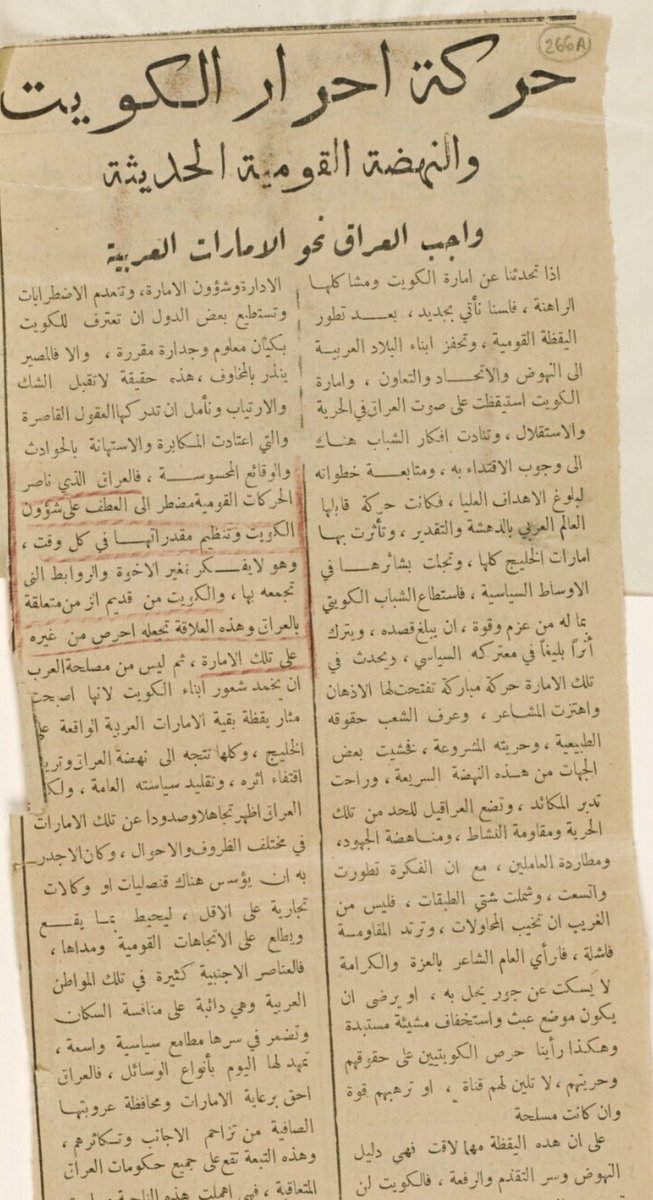 266A
حركة احرار الكويت
والنهضة القومية الحديثة
واجب العراق نحو الامارات العربية
اذا تحدثنا عن امارة الكويت ومشاكلها
الراهنة ، فلسنا نأتي بجديد ، بعد تطور
اليقظة القومية ، وتحفز ابناء البلاد العربية
الى النهوض والاتحاد والتعاون ، وامارة
الكويت استيقظت على صوت العراق في الحرية
والاستقلال ، وتنادت افكار الشباب هناك
الى وجوب الاقتداء به ، ومتابعة خطواته
لبلوغ الاهداف العليا ، فكانت حركة قابلها
العالم العربي بالدهشة والتقدير ، وتأثرت بها
امارات الخليج كلها ، وتجلت بشائرها في
الاوساط السياسية ، فاستطاع الشباب الكويتي
بما له من عزم وقوة ، ان يبلغ قصده ، ويترك
أثراً بليغاً في معتركه السياسي ، ويحدث في
تلك الامارة حركة مباركة تفتحت لها الاذهان
واهتزت المشاعر ، وعرف الشعب حقوقه
الطبيعية ، وحريته المشروعة ، فخشيت بعض
الجهات من هذه النهضة السريعة ، وراحت
تدبر المكائد ، وتضع العراقيل للحد من تلك
الحرية ومقاومة النشاط ، ومناهضة الجهود،
ومطاردة العاملين ، مع ان الفكرة تطورت
واتسعت ، وشملت شتي الطبقات ، فليس من
الغريب ان تخيب المحاولات ، وترتد المقاومة
فاشلة ، فالرأي العام الشاعر بالعزة والكرامة
لا يسكت عن جور يحل به ، او يرضى ان
يكون موضع عبث واستخفاف مشيئة مستبدة
وهكذا رأينا حرص الكويتيين على حقوقهم
وحريتهم ، لا تلين لهم قناة ، او ترهبهم قوة
وان كانت مسلحة
على ان هذه اليقظة مهما لاقت فهي دليل
النهوض وسر التقدم والرفعة ، فالكويت لن
الادارة وشؤون الامارة، وتنعدم الاضطرابات
وتستطيع بعض الدول ان تعترف للكويت
بكيان معلوم وجدارة مقررة ، والا فالمصير
ينذر بالمخاوف ، هذه حقيقة لا تقبل الشك
والارتياب ونأمل ان تدركها العقول القاصرة
والتي اعتادت المكابرة والاستهانة بالحوادث
والوقائع المحسوسة ، فالعراق الذي ناصر
الحركات القومية مضطر الى العطف على شؤون
الكويت وتنظيم مقدراتها في كل وقت ،
وهو لا يفكر بغير الاخوة والروابط التي
تجمعه بها ، والكويت من قديم الزمن متعلقة
بالعراق وهذه العلاقة تجعله احرص من غيره
على تلك الامارة ، ثم ليس من مصلحة العرب
ان يخمد شعور ابناء الكويت لانها اصبحت
مثار يقظة بقية الامارات العربية الواقعة على
الخليج ، وكلها تتجه الى نهضة العراق وتريد
اقتفاء اثره ، وتقليد سياسته العامة ، ولكن
العراق اظهر تجاهلا وصدودا عن تلك الامارات
في مختلف الظروف والاحوال ، وكان الاجدر
به ان يؤسس هناك قنصليات او وكالات
تجارية على الاقل ، ليحيط بما يقع
ويطلع على الاتجاهات القومية ومداها ،
فالعناصر الاجنبية كثيرة في تلك المواطن
العربية وهي دائبة على منافسة السكان
وتضمر في سرها مطامع سياسية واسعة ،
تمهد لها اليوم بأنواع الوسائل ، فالعراق
احق برعاية الامارات ومحافظة عروبتها
الصافية من تزاحم الاجانب وتكاثرهم ،
وهذه التبعة تقع على جميع حكومات العراق
المتعاقبة ، فهي اهملت هذه الناحية